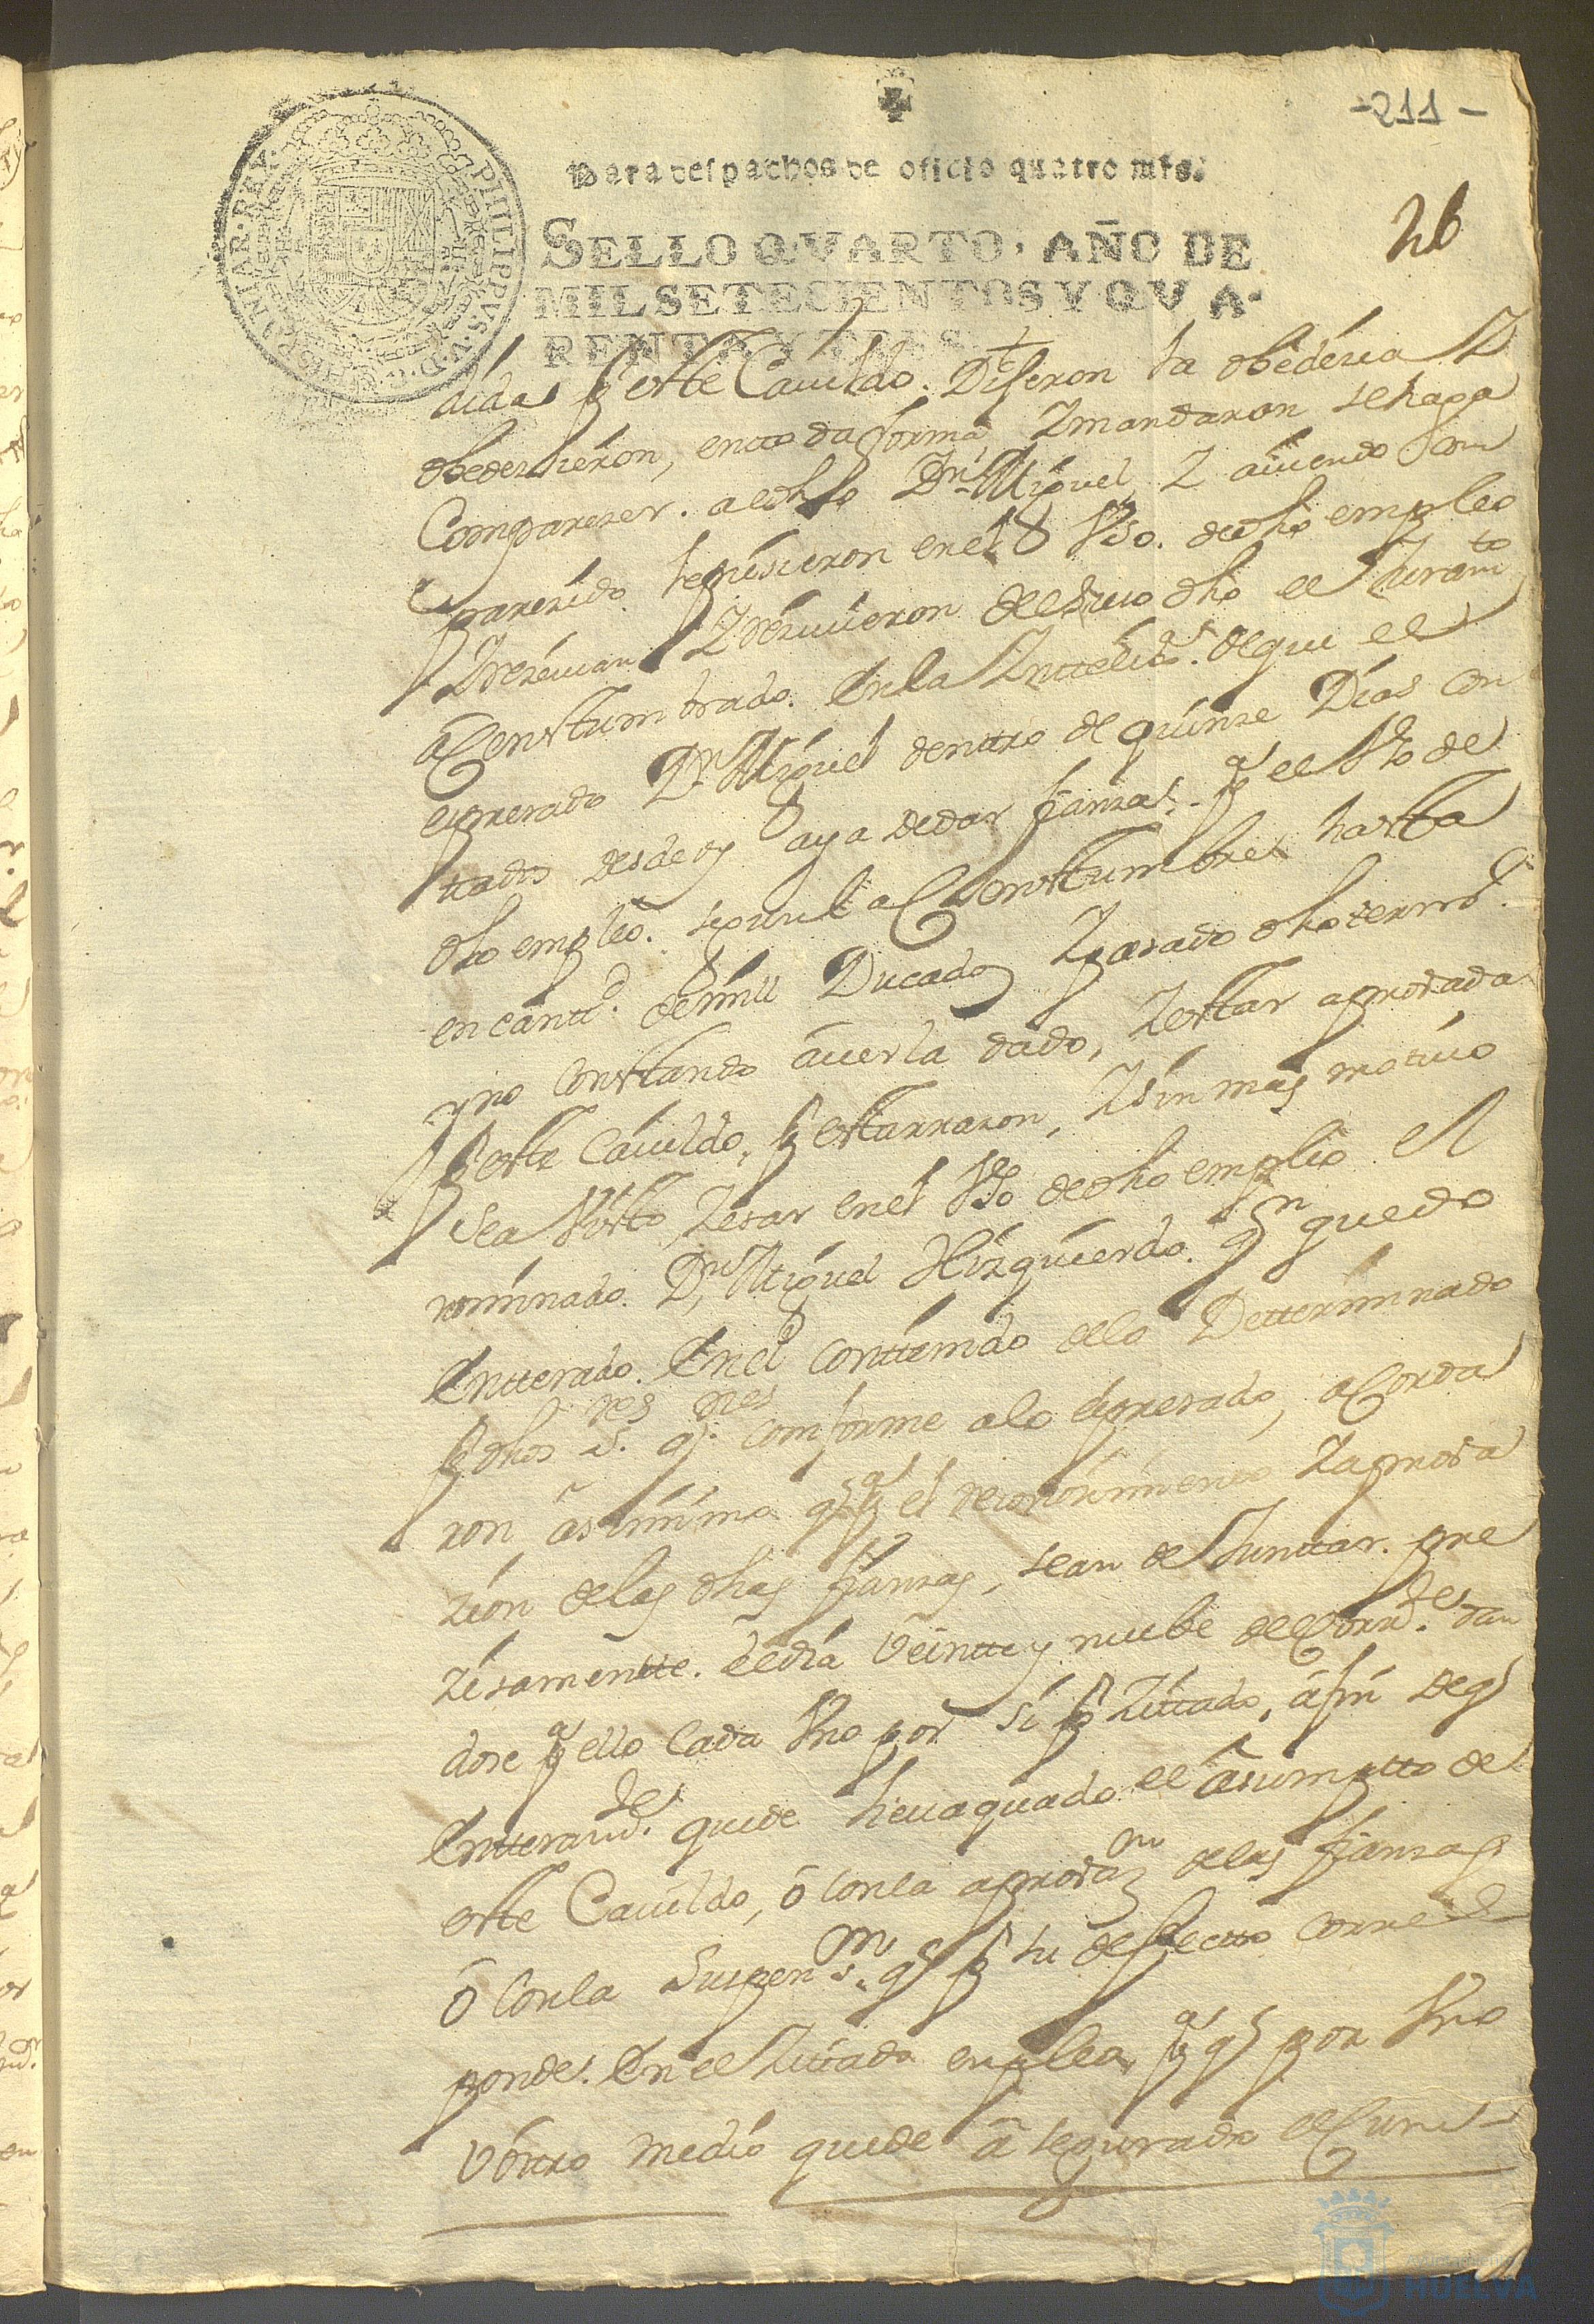 -211-
Para despachos de oficio quatro mrs.
26
SELLO QVARTO, AÑO DE
MIL SETECIENTOS Y QVA-
RENTA Y TRES.
PHILIPPVS V D G HISPANIAR REX
didas p este Cauildo. Dijeron la obedésia Y
obedesieron, en ttoda forma, Y mandaron se haga
Comparezer. a el dho Dn Miguel, Y auiendo Com
parezido le pusieron en el Vso. de dho empleo
Y rezeuieron de el suso dho el Juramto
aCosttumbrado. En la de que el
expresado Dn Miguel denttro de quinse Dias Con
ttados desde oy aya de dar fianzas. pa el Vso de
dho empleo. segun la aCosttumbre hastta
en canttd. de mill Ducados Y pasado dho termo.
y no Consttando auerla dado, Y esttar aprouada
p estte Cauildo, p estta razon, Y sin mas motiuo
sea Vistto Zesar en el Vso de dho empleo el
nominado. Dn Miguel Hizquierdo. qn quedo
Entterado. En el conttenido de lo Detterminado
p dhos Sres qnes conforme a lo expresado, aCorda
ron asimimo q pa el reconosimiento Y aprova
zion de las dhas fianzas, sean de Junttar. pre
zisamentte. el dia Veintte y nuebe de el Corrte. dan
dose pa ello Cada Vno por si p Zittado, a fin de q
Entterand. quede heuaquado el asumptto de
estte Cauildo, ó Con la aprovazn de las fianzas
ó Con la Suspensn. q p su defectto corres
ponde. En el Zittado empleo, pa q por Vno
V ottro medio quede asegurado el
HUELVA